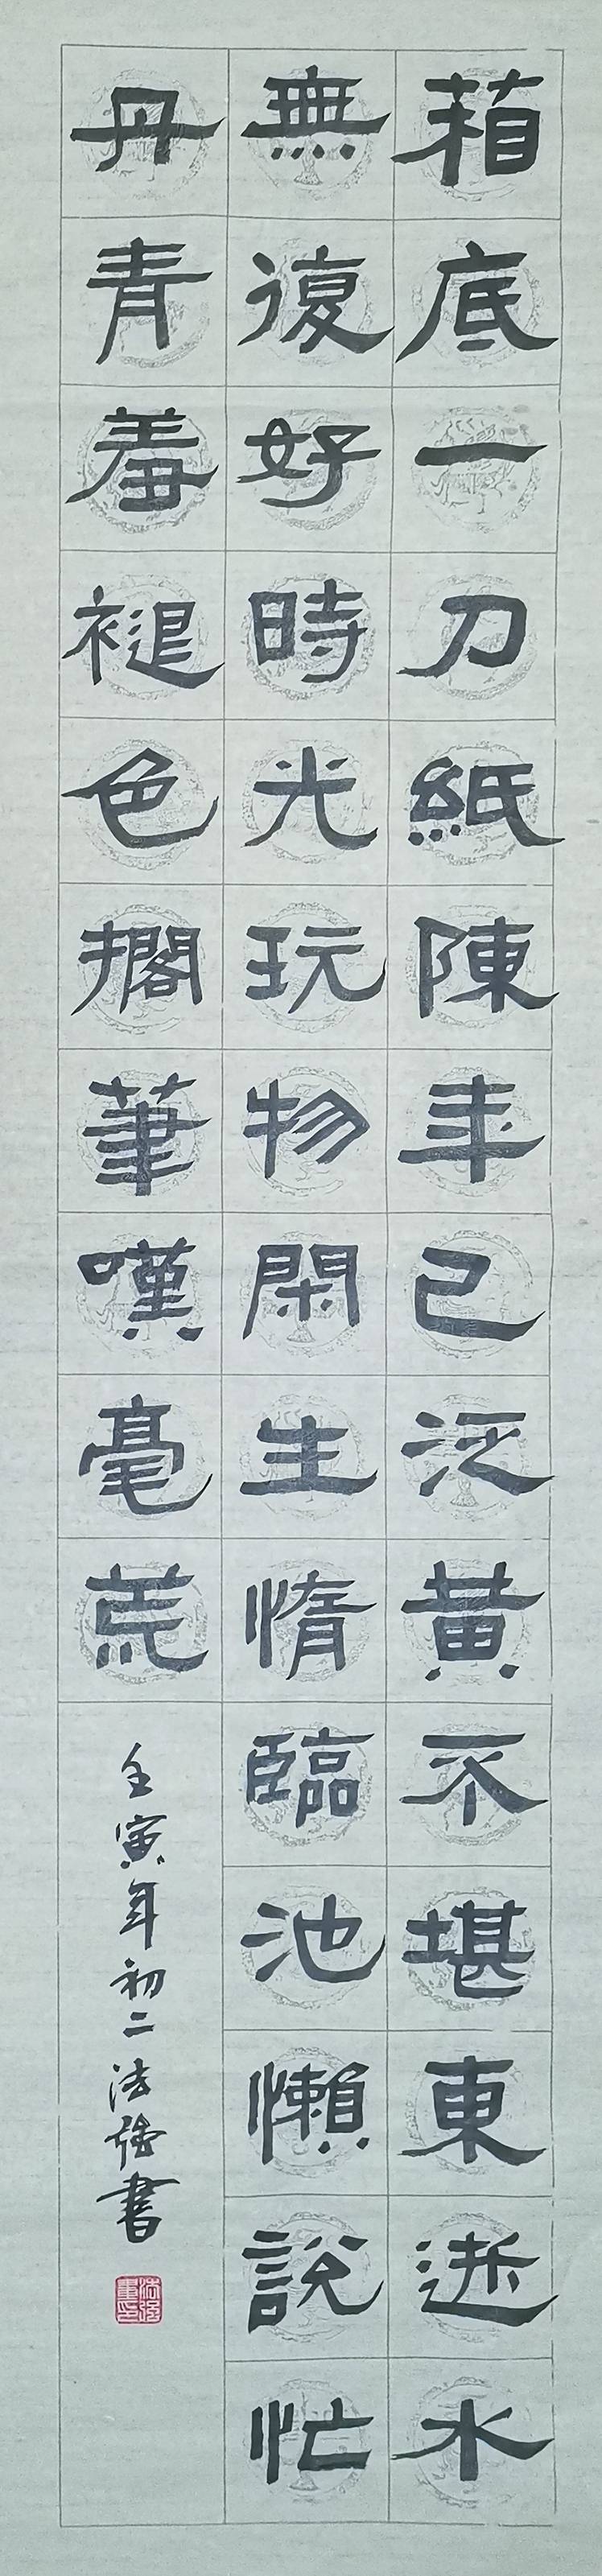 箱底一刀紙陳年已泛黃不堪東逝水
無復好時光玩物閑生惰臨池懶說忙
丹青羞褪色擱筆嘆毫荒
壬寅年初二法強書